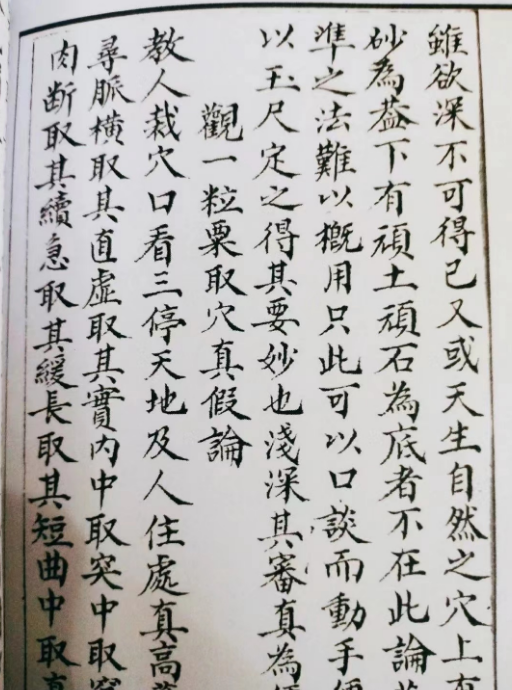 雖欲深不可得已又或天生自然之穴上
砂為蓋下有頑土頑石為底者不在此論
準之法難以概用只此可以口談而動手
以玉尺定之得其要妙也淺深其審真為
觀一粒粟取穴真假論
教人裁穴口看三停天地及人住處真高
尋脈橫取其直虛取其實內中取突中取
肉断取其續急取其緩長取其短曲中取